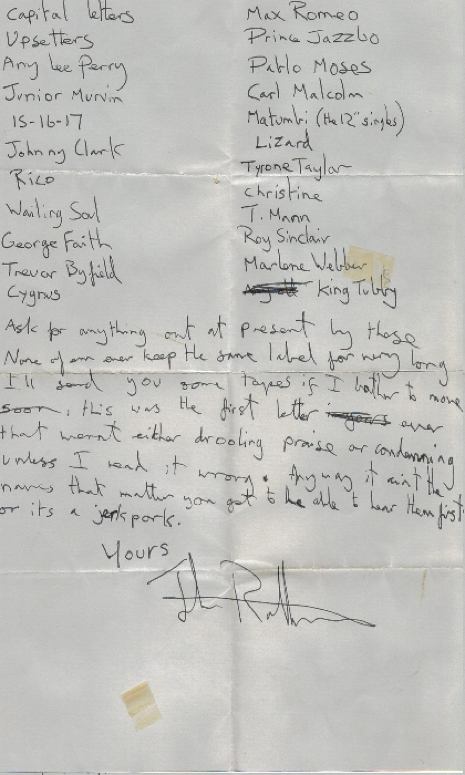 Capital letters
Upsetters
Any Lee Perry
Junior Murvin
15-16-17
Johnny Clark
Rico
Wailing Soul
George Faith
Trevor Byfield
Cygnus
Max Romeo
Prince Jazzbo
Pablo Moses
Carl Malcolm
Matumbi (the 12" singles)
Lizard
Tyrone Taylor
Christine
T. Mann
Roy Sinclair
Marlene Webber
King Tubby
Ask for anything out at present by those
None of em ever keep the same label for very long
I'll send you some tapes if I bother to move
soon, this was the first letter ever
that wernt either drooling praise or condemning
unless I read it wrong. Anyway it aint the
names that matter you got to be able to hear them first
or its a jerk pork.
Yours